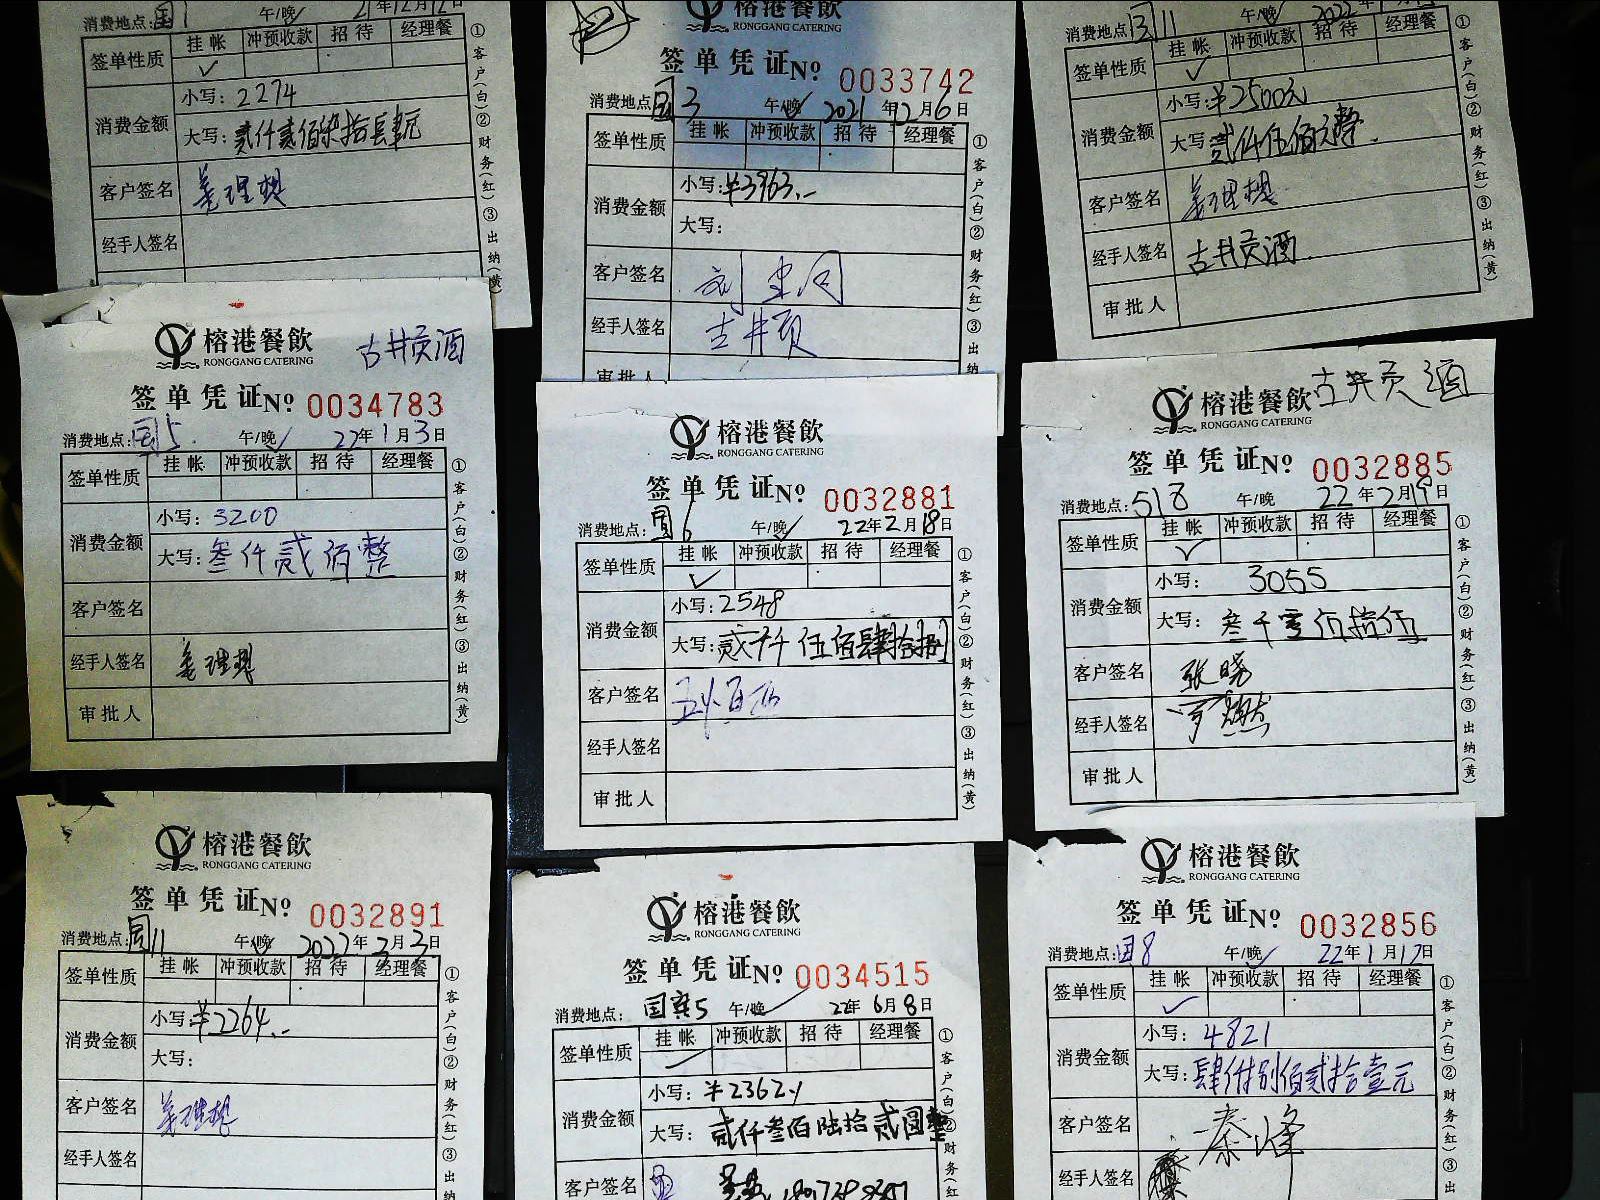 消费地点:国1 午/晚 21年12月12日
签单性质 挂帐 冲预收款 招待 经理餐
消费金额 小写:2274
大写:贰仟贰佰柒拾肆元
客户签名 姜理想
经手人签名
①客户(白)②财务(红)③出纳(黄)
榕港餐飲
RONGGANG CATERING
签单凭证No 0033742
消费地点:国3 午/晚 2021年12月6日
签单性质 挂帐 冲预收款 招待 经理餐
消费金额 小写:¥3963.-
大写:
客户签名
经手人签名 古井贡
审批人
①客户(白)②财务(红)③出纳
消费地点:国11 午/晚 2022年
签单性质 挂帐 冲预收款 招待 经理餐
消费金额 小写:¥2500元
大写:贰仟伍佰元整
客户签名 姜理想
经手人签名 古井贡酒
审批人
①客户(白)②财务(红)③出纳(黄)
榕港餐飲 古井贡酒
RONGGANG CATERING
签单凭证No 0034783
消费地点:国5 午/晚 22年1月3日
签单性质 挂帐 冲预收款 招待 经理餐
消费金额 小写:3200
大写:叁仟贰佰整
客户签名
经手人签名 姜理想
审批人
①客户(白)②财务(红)③出纳(黄)
榕港餐飲
RONGGANG CATERING
签单凭证No 0032881
消费地点:国6 午/晚 22年2月18日
签单性质 挂帐 冲预收款 招待 经理餐
消费金额 小写:2548
大写:贰仟 伍佰肆拾捌
客户签名
经手人签名
审批人
①客户(白)②财务(红)③出纳(黄)
榕港餐飲 古井贡酒
RONGGANG CATERING
签单凭证No 0032885
消费地点:518 午/晚 22年2月19日
签单性质 挂帐 冲预收款 招待 经理餐
消费金额 小写:3055
大写:叁千零佰拾伍
客户签名 张晓
经手人签名
审批人
①客户(白)②财务(红)③出纳(黄)
榕港餐飲
RONGGANG CATERING
签单凭证No 0032891
消费地点:国11 午/晚 2022年2月3日
签单性质 挂帐 冲预收款 招待 经理餐
消费金额 小写:¥2264.-
大写:
客户签名 姜理想
经手人签名
①客户(白)②财务(红)③出纳
榕港餐飲
RONGGANG CATERING
签单凭证No 0034515
消费地点:国宾5 午/晚 22年6月8日
签单性质 挂帐 冲预收款 招待 经理餐
消费金额 小写:¥2362
大写:贰仟叁佰陆拾贰圆整
客户签名
①客户(白)②财务(红)
榕港餐飲
RONGGANG CATERING
签单凭证No 0032856
消费地点:国8 午/晚 22年1月17日
签单性质 挂帐 冲预收款 招待 经理餐
消费金额 小写:4821
大写:肆仟捌佰贰拾壹元
客户签名 秦峰
经手人签名
①客户(白)②财务(红)③